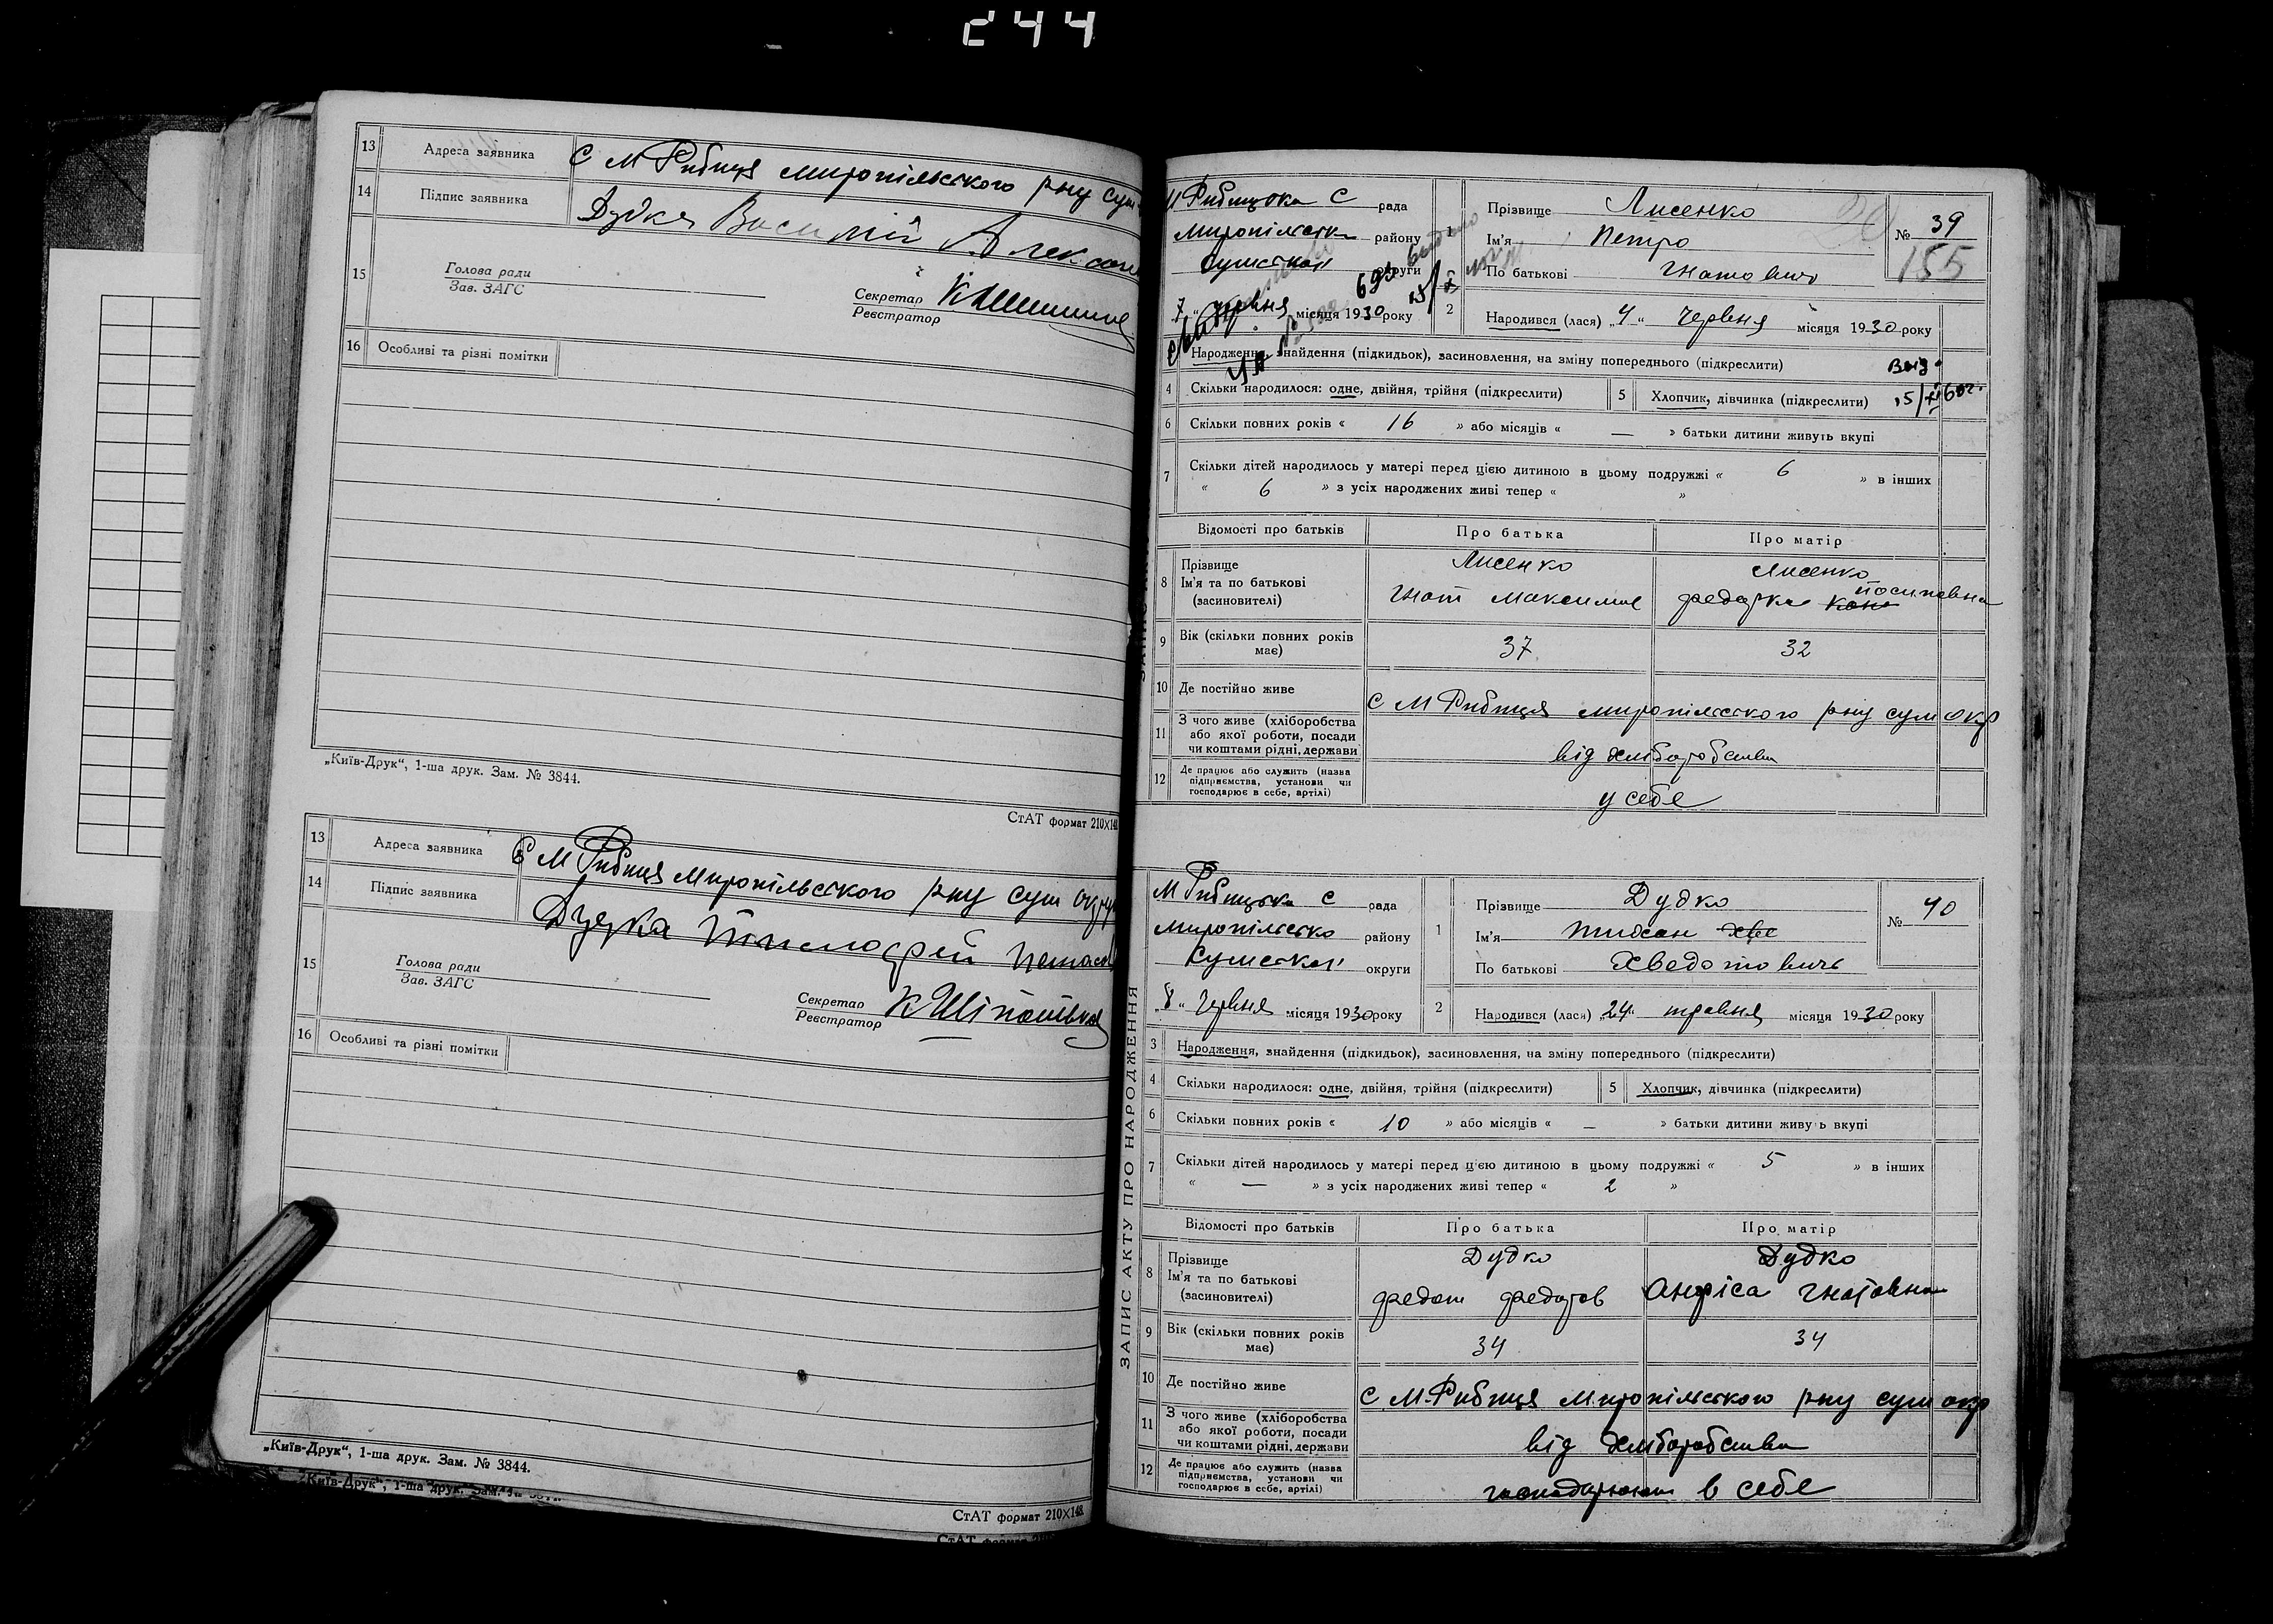 244
13 Адреса заявника С М Рибиця миропільського рну сум
14 Підпис заявника Дудка Василій Алексан
15 Голова ради
Зав. ЗАГС
Секретар
Реєстратор
16 Особливі та різні помітки
„Київ-Друк“, 1-ша друк. Зам. № 3844.
СтАТ формат 210×148
13 Адреса заявника С М Рибиця Миропільського рну сум окру
14 Підпис заявника Дудка
15 Голова ради
Зав. ЗАГС
Секретар
Реєстратор
16 Особливі та різні помітки
„Київ-Друк“, 1-ша друк. Зам. № 3844.
„Київ-Друк“, 1-ша друк. Зам.
СтАТ формат 210×148.
М Рибицька С рада
Миропільськ району
Сумської округи
7 „ червня місяця 1930 року
Прізвище Лисенко
Ім'я Петро
По батькові Гнатович
№ 39
155
2 Народився (лася) „4“ Червня місяця 1930 року
Народження, знайдення (підкидьок), засиновлення, на зміну попереднього (підкреслити)
Выд.
4 Скільки народилося: одне, двійня, трійня (підкреслити) 5 Хлопчик, дівчинка (підкреслити)
6 Скільки повних років « 16 » або місяців « — » батьки дитини живуть вкупі
7 Скільки дітей народилось у матері перед цією дитиною в цьому подружжі « 6 » в інших
« 6 » з усіх народжених живі тепер « »
Відомості про батьків Про батька Про матір
8 Прізвище Лисенко Лисенко
Ім'я та по батькові
(засиновителі) Гнат Максимов Федорка
9 Вік (скільки повних років має) 37 32
10 Де постійно живе С М Рибиця миропільського рну сум окр
11 З чого живе (хліборобства
або якої роботи, посади
чи коштами рідні, держави від хліборобства
12 Де працює або служить (назва
підприємства, установи чи
господарює в себе, артілі) у себе
ЗАПИС АКТУ ПРО НАРОДЖЕННЯ
М Рибицька С рада
Миропільсько району
Сумської округи
„8“ Червня місяця 1930 року
1 Прізвище Дудко
Ім'я
По батькові Хведотович
№ 40
2 Народився (лася) „24“ травня місяця 1930 року
3 Народження, знайдення (підкидьок), засиновлення, на зміну попереднього (підкреслити)
4 Скільки народилося: одне, двійня, трійня (підкреслити) 5 Хлопчик, дівчинка (підкреслити)
6 Скільки повних років « 10 » або місяців « — » батьки дитини живуть вкупі
7 Скільки дітей народилось у матері перед цією дитиною в цьому подружжі « 5 » в інших
« — » з усіх народжених живі тепер « 2 »
Відомості про батьків Про батька Про матір
8 Прізвище Дудко Дудко
Ім'я та по батькові
(засиновителі) Федот Федотов Анфіса Гнатовна
9 Вік (скільки повних років має) 34 34
10 Де постійно живе С М-Рибиця Миропільського рну сум окр
11 З чого живе (хліборобства
або якої роботи, посади
чи коштами рідні, держави від хліборобства
12 Де працює або служить (назва
підприємства, установи чи
господарює в себе, артілі) господарюют в себе